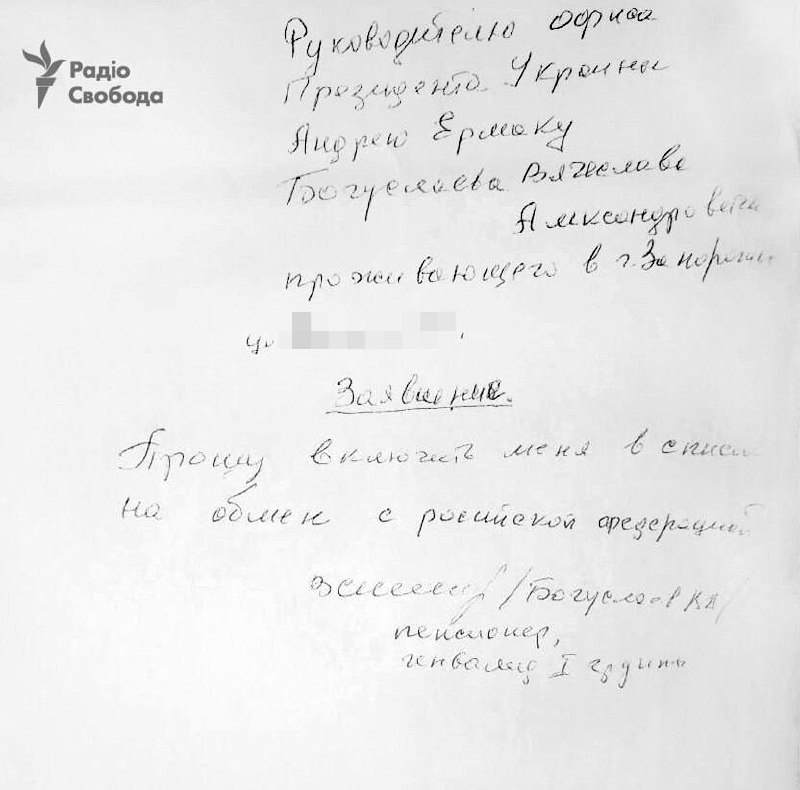 Радіо
Свобода
Руководителю офиса
Президента Украины
Андрею Ермаку
Богуслаева Вячеслава
Александровича
проживающего в г. Запорожи
ул
Заявление.
Прошу включить меня в список
на обмен с росийской федерацией
/Богуслаев ВА/
пенсионер,
инвалид I групы